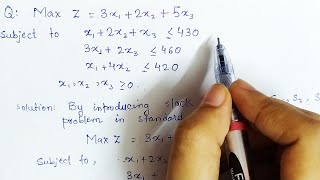 Q: Max Z = 3x₁ + 2x₂ + 5x₃
Subject to x₁ + 2x₂ + x₃ ≤ 430
3x₂ + 2x₃ ≤ 460
x₁ + 4x₂ ≤ 420
x₁, x₂, x₃ ≥ 0
Solution: By introducing slack S₂
problem in standard
Max Z = 3x₁ +
Subject to, x₁ + 2x₂
3x₁ +